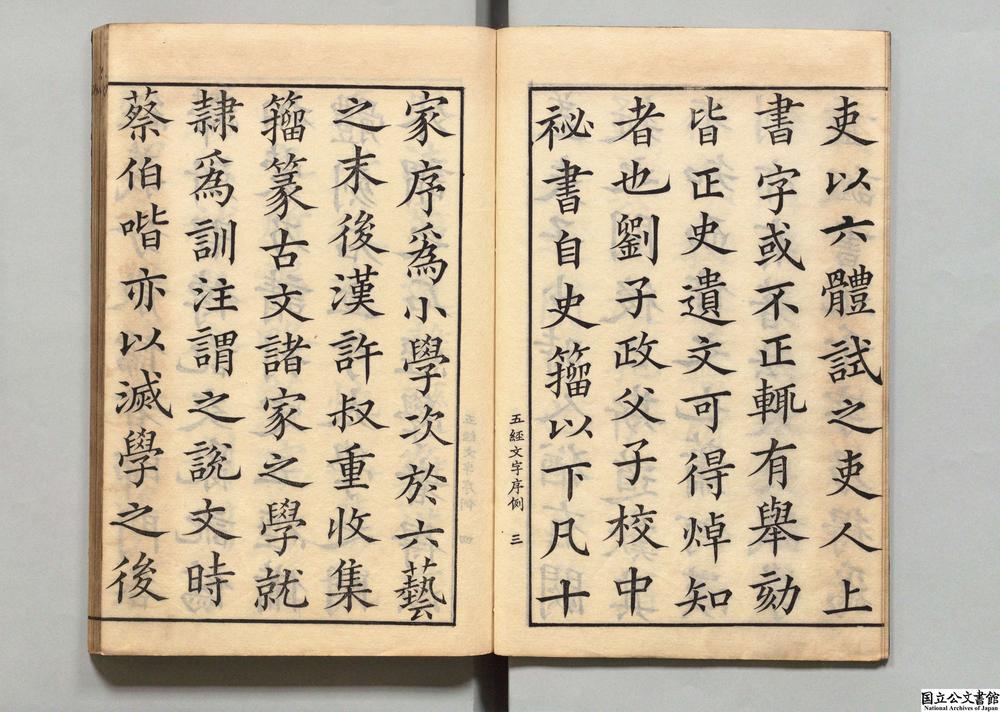 吏以六體試之吏人上
書字或不正輒有舉劾
皆正史遺文可得焯知
者也劉子政父子校中
祕書自史籀以下凡十
五經文字序例 三
家序爲小學次於六藝
之末後漢許叔重收集
籀篆古文諸家之學就
隷爲訓注謂之説文時
蔡伯喈亦以滅學之後
国立公文書館
National Archives of Japan